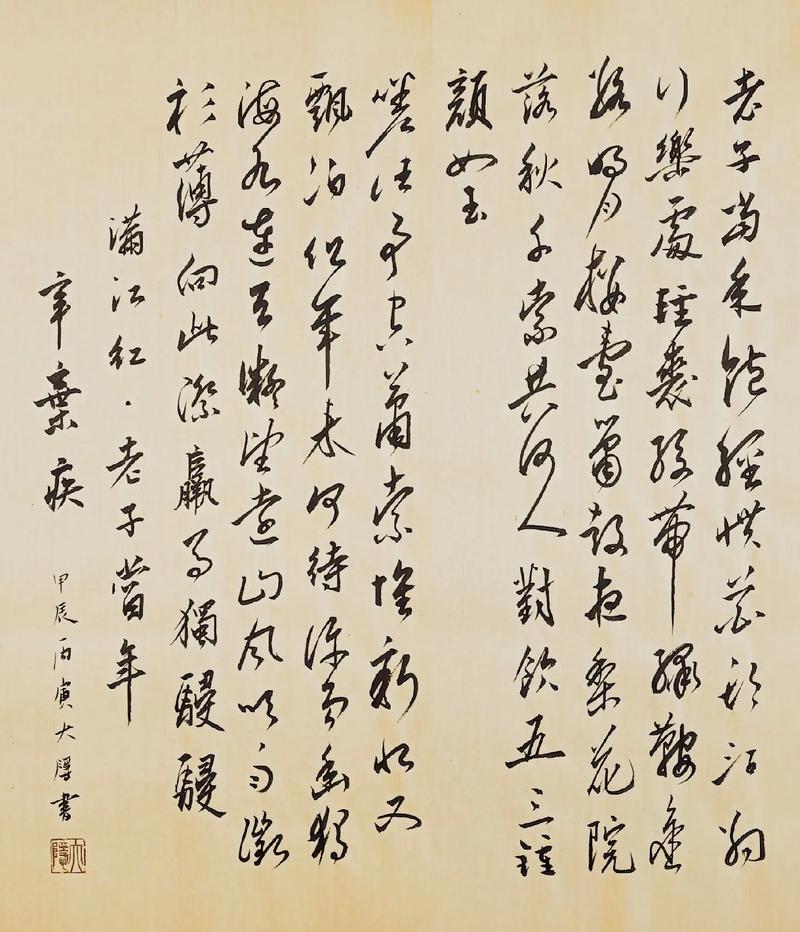 老子當年飽經慣花期酒約
行樂處輕裘緩帶繡鞍金
絡明月樓臺簫鼓夜梨花院
落秋千索共何人對飲五三鍾
顏如玉
嗟往事空蕭索懷新恨又
飄泊但年來何待許多幽獨
海水連天凝望遠山風吹雨征
衫薄向此際羸馬獨駸駸
滿江紅·老子當年
辛棄疾
甲辰丙寅大隱書
大隱